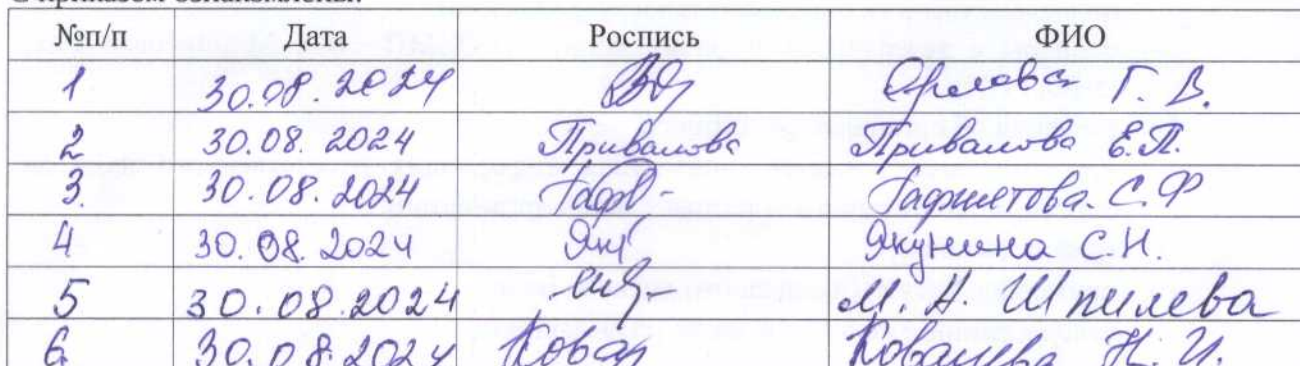 С приказом ознакомлены:
№п/п Дата Роспись ФИО
1 30.08.2024 Орлова Г. В.
2 30.08.2024 Привалова Привалова Е.П.
3. 30.08.2024 Гаф- С.Ф
4 30.08.2024 Як Якунина С.Н.
5 30.08.2024 М. Н. Шпилева
6. 30.08.2024 Ковал Ковалева Н. И.